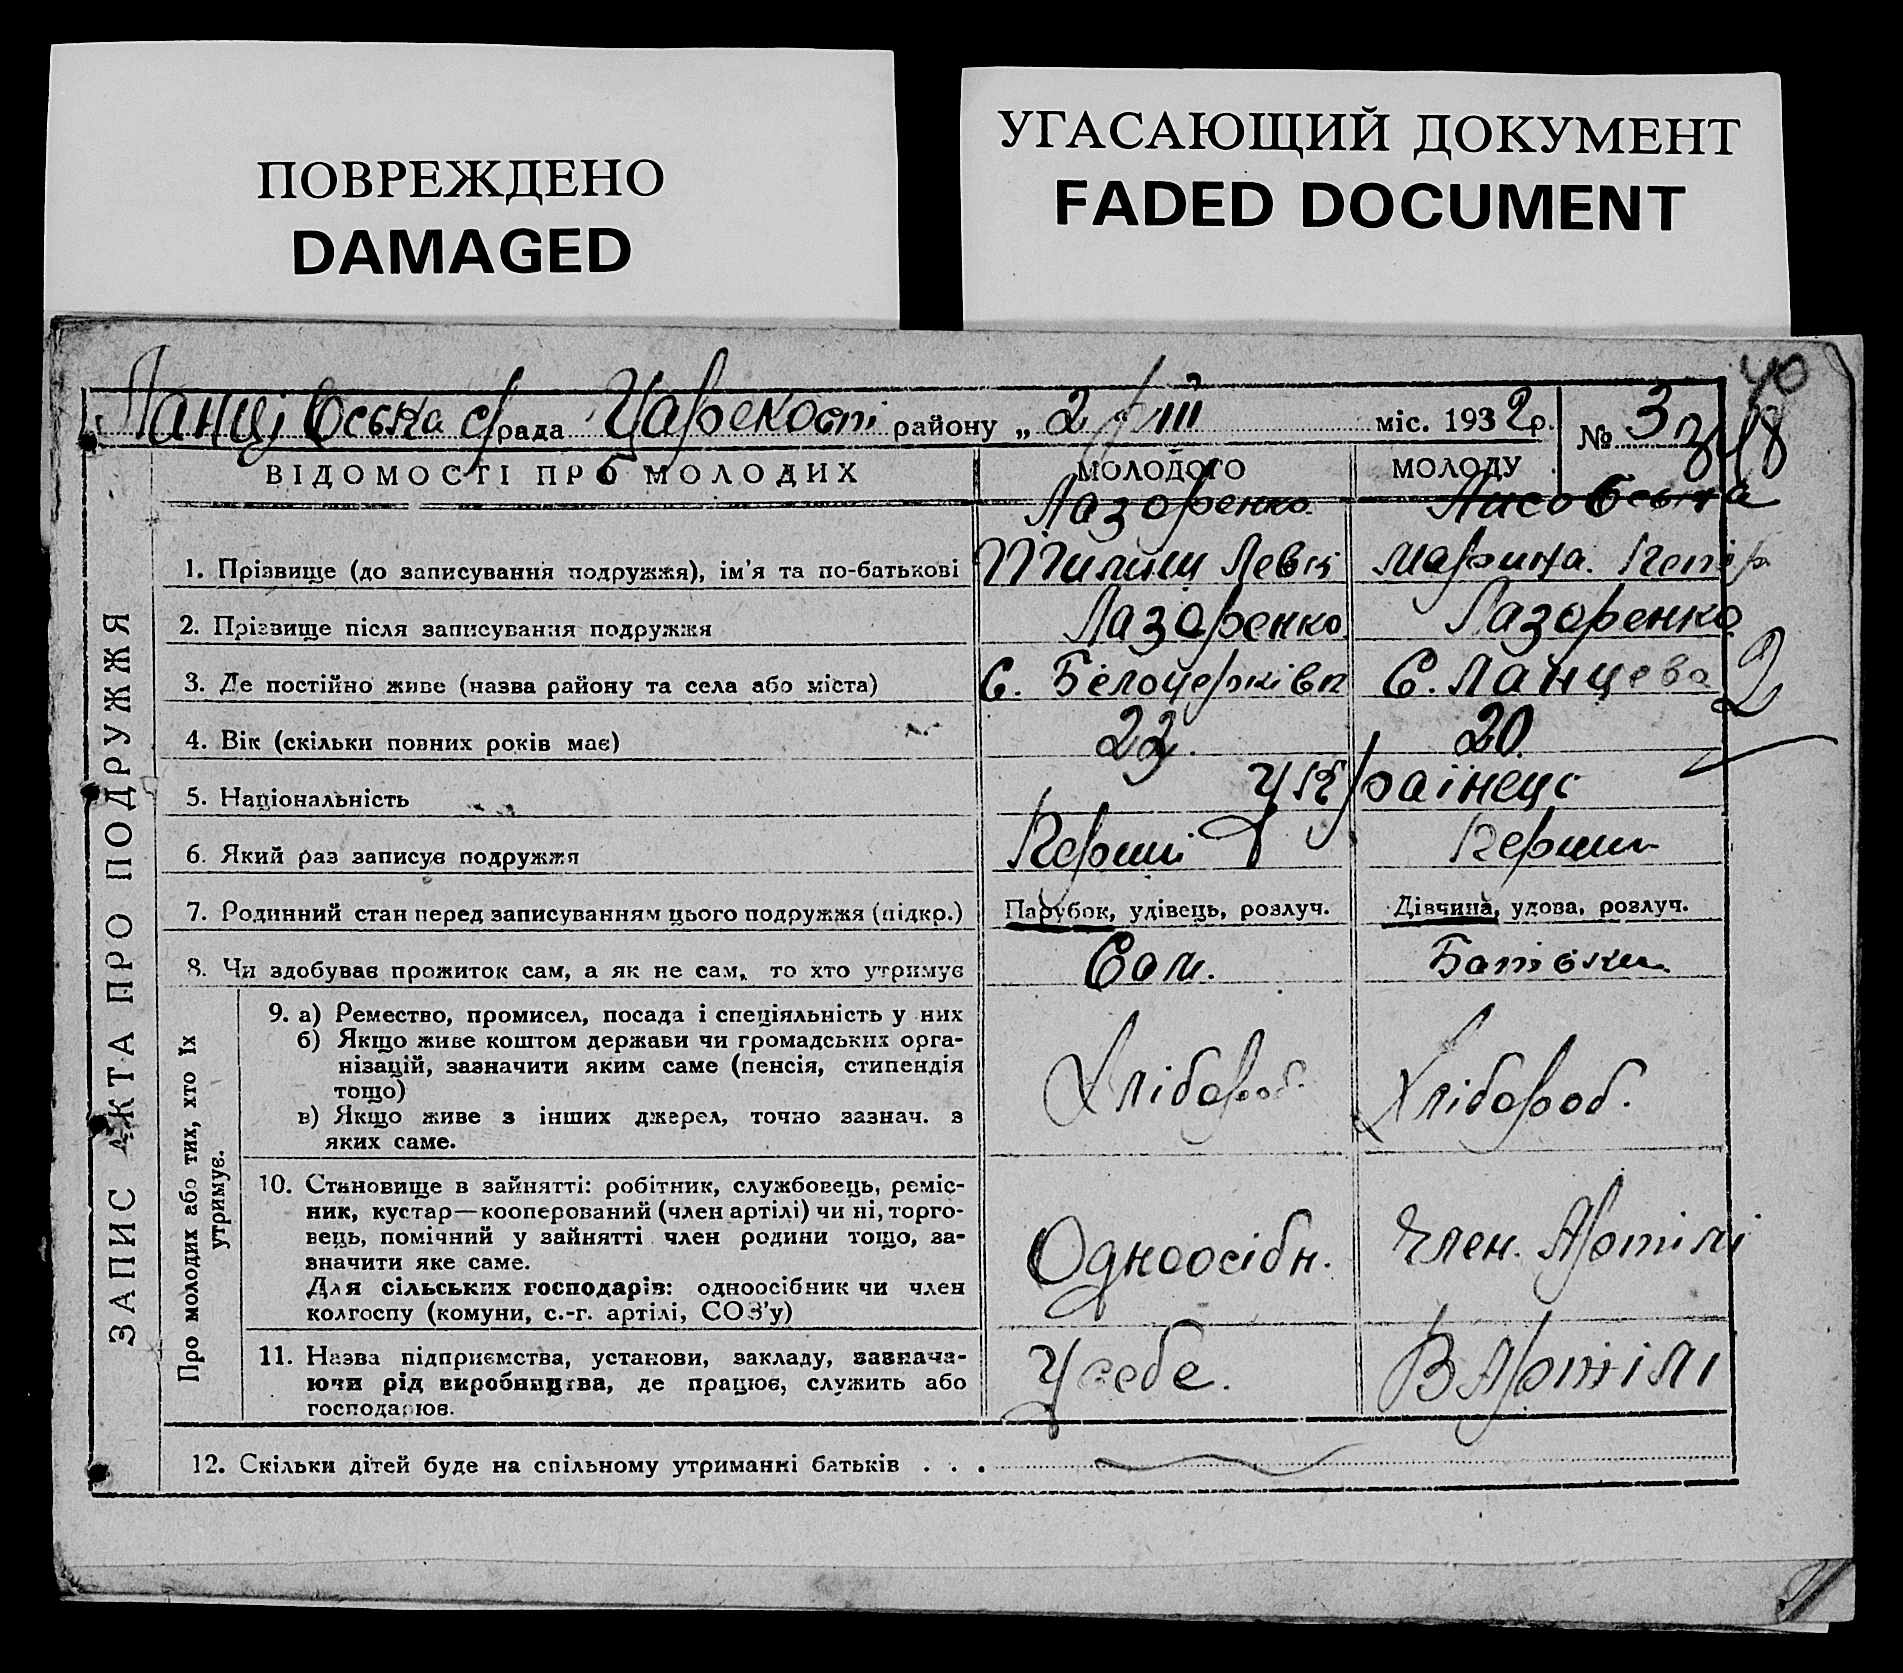 ПОВРЕЖДЕНО
DAMAGED
УГАСАЮЩИЙ ДОКУМЕНТ
FADED DOCUMENT
40
Ланцівська с/рада Царекост. району „ 2 / III міс. 1932 р. № 3
ВІДОМОСТІ ПРО МОЛОДИХ МОЛОДОГО МОЛОДУ
Лазоренко Лисовська
1. Прізвище (до записування подружжя), ім'я та по-батькові Левк Марина. Петр
2. Прізвище після записування подружжя Лазоренко Лазоренко
3. Де постійно живе (назва району та села або міста) С. Білоцерківк С. Ланцева
2
4. Вік (скільки повних років має) 22. 20.
5. Національність Українець
6. Який раз записує подружжя Перши Перши
7. Родинний стан перед записуванням цього подружжя (підкр.) Парубок, удівець, розлуч. Дівчина, удова, розлуч.
8. Чи здобуває прожиток сам, а як не сам, то хто утримує Сам. Батьки
9. а) Ремество, промисел, посада і спеціяльність у них
б) Якщо живе коштом держави чи громадських орга-
нізацій, зазначити яким саме (пенсія, стипендія
тощо)
в) Якщо живе з інших джерел, точно зазнач. з
яких саме.
Хлібороб Хлібороб.
10. Становище в зайнятті: робітник, службовець, реміс-
ник, кустар—кооперований (член артілі) чи ні, торго-
вець, помічний у зайнятті член родини тощо, за-
значити яке саме.
Для сільських господарів: одноосібник чи член
колгоспу (комуни, с.-г. артілі, СОЗ'у)
Одноосібн. Член. Артілі
11. Назва підприємства, установи, закладу, зазнача-
ючи рід виробництва, де працює, служить або
господарює.
У себе. В Артілі
12. Скільки дітей буде на спільному утриманні батьків . . .
ЗАПИС АКТА ПРО ПОДРУЖЖЯ
Про молодих або тих, хто їх
утримує.